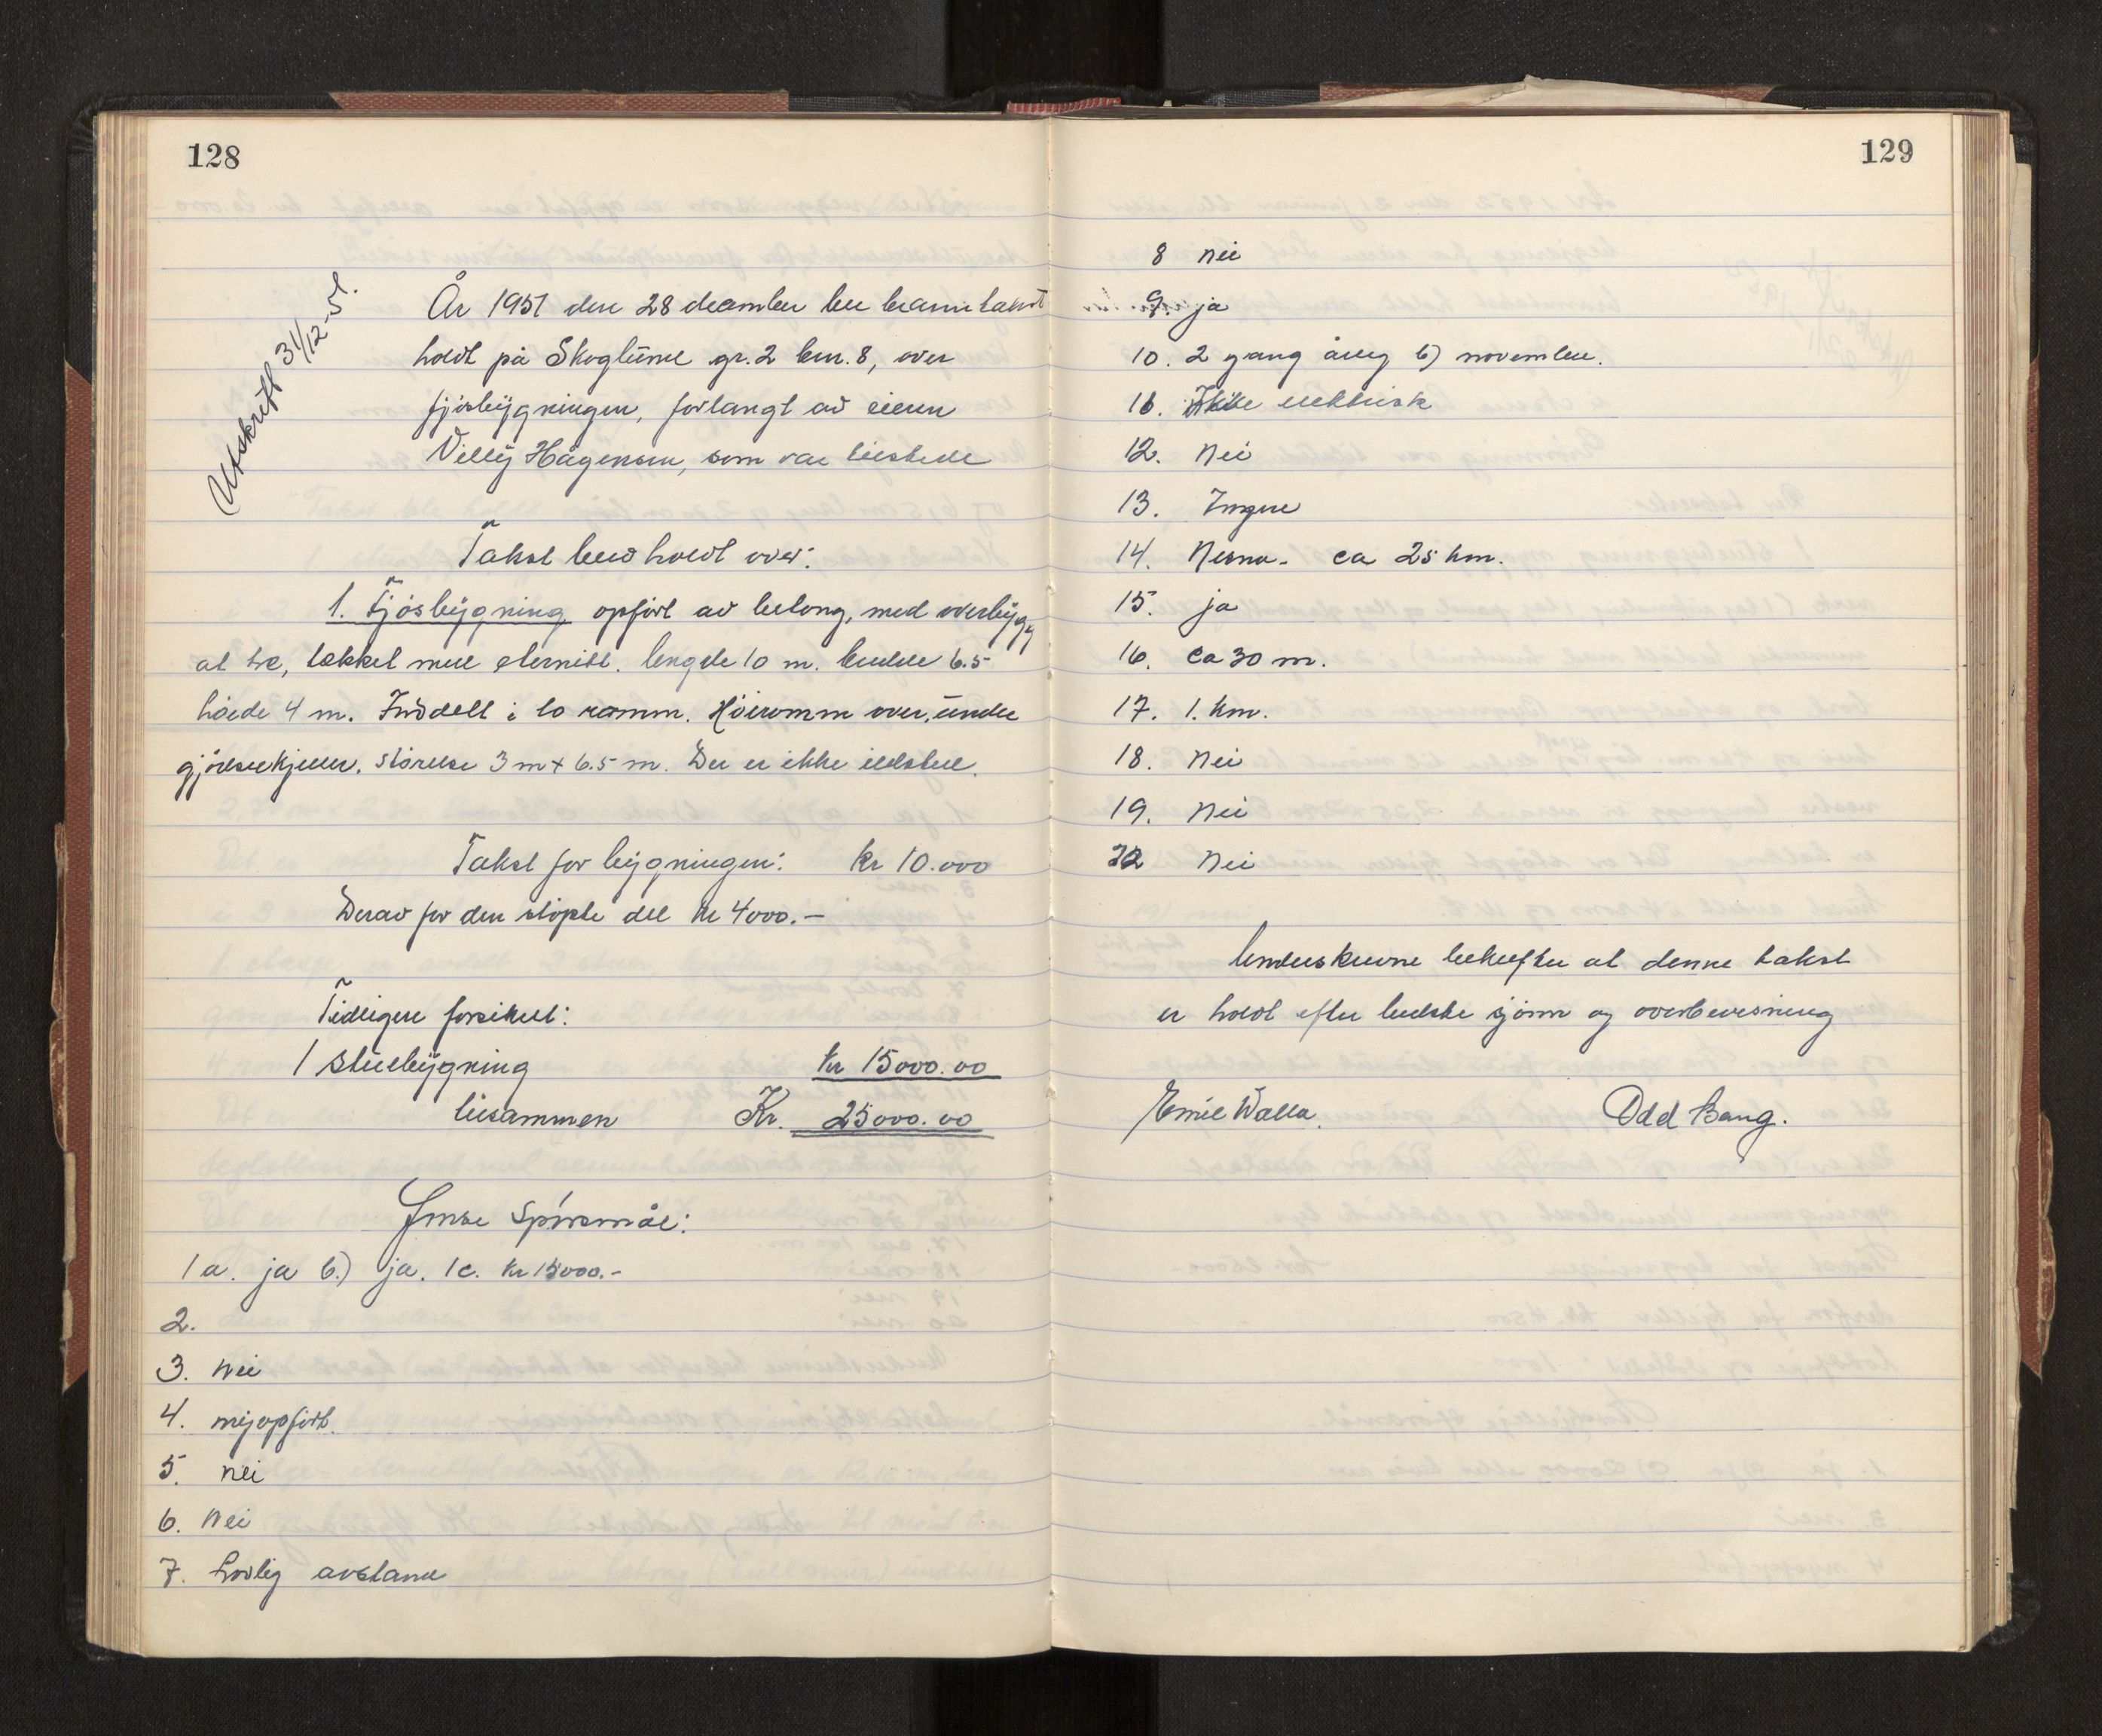 128
Utskrift 31/12-51.
År 1951 den 28 desember ble branntakst
holdt på Skoglund gr. 2 bnr. 8, over
fjósbygningen, forlangt av eieren
Villy Hågensen, som var tilstede
Takst blev holdt over:
1. Fjósbygning opfört av betong, med overbygg
at tre, tekket med eternitt. lengde 10 m. bredde 6.5
höide 4 m. Inddelt i to romm. Höiromm over, under
gjödselkjeller. störelse 3 m + 6.5 m. Der er ikke ildsted.
Takst for bygningen: kr 10.000
Derav for den stöpte del kr 4000.-
Tidligere forsikret:
1 stuebygning kr 15000.00
tilsammen Kr. 25000.00
Spörsmål:
1 a. ja b.) ja. 1c. kr 15000.-
2.
3. nei
4. nyopfört.
5. nei
6. nei
7. lovlig avstand
129
8 nei
9. ja
10. 2 gang årlig b) november.
11. Ikke elektrisk
12. Nei
13. Ingen
14. Nesna. ca 25 km.
15. ja
16. ca 30 m.
17. 1. km.
18. Nei
19. Nei
22 Nei
Underskrevne bekrefter at denne takst
er holdt efter bedste sjönn og overbevisning
Emil Walla. Odd Bang.